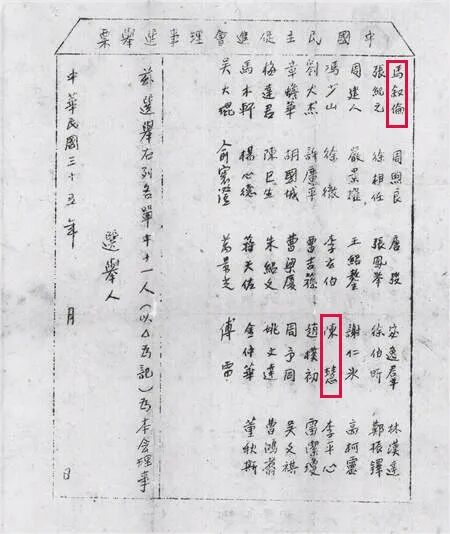 中國民主促進會理事選舉票
馬叙倫 周煦良 唐弢 宓逸羣 林漢達
張紀元 徐相任 張鳳舉 徐伯昕 鄭振鐸
周建人 嚴景耀 王紹鏊 謝仁冰
馮少山 徐徹 李玄伯 陳慧 李平心
劉大杰 許廣平 趙樸初 雷潔瓊
章蟾華 胡國城 曹梁廈 周予同 吳文祺
梅達君 陳巳生 朱紹文 曹鴻翥
馬木軒 楊心德 蔣天佐 金仲華 董秋斯
吳大琨 俞寰澄 萬景光 傅雷
茲選舉右列名單中十一人（以△爲記）爲本會理事
選舉人
中華民國三十五年 月 日